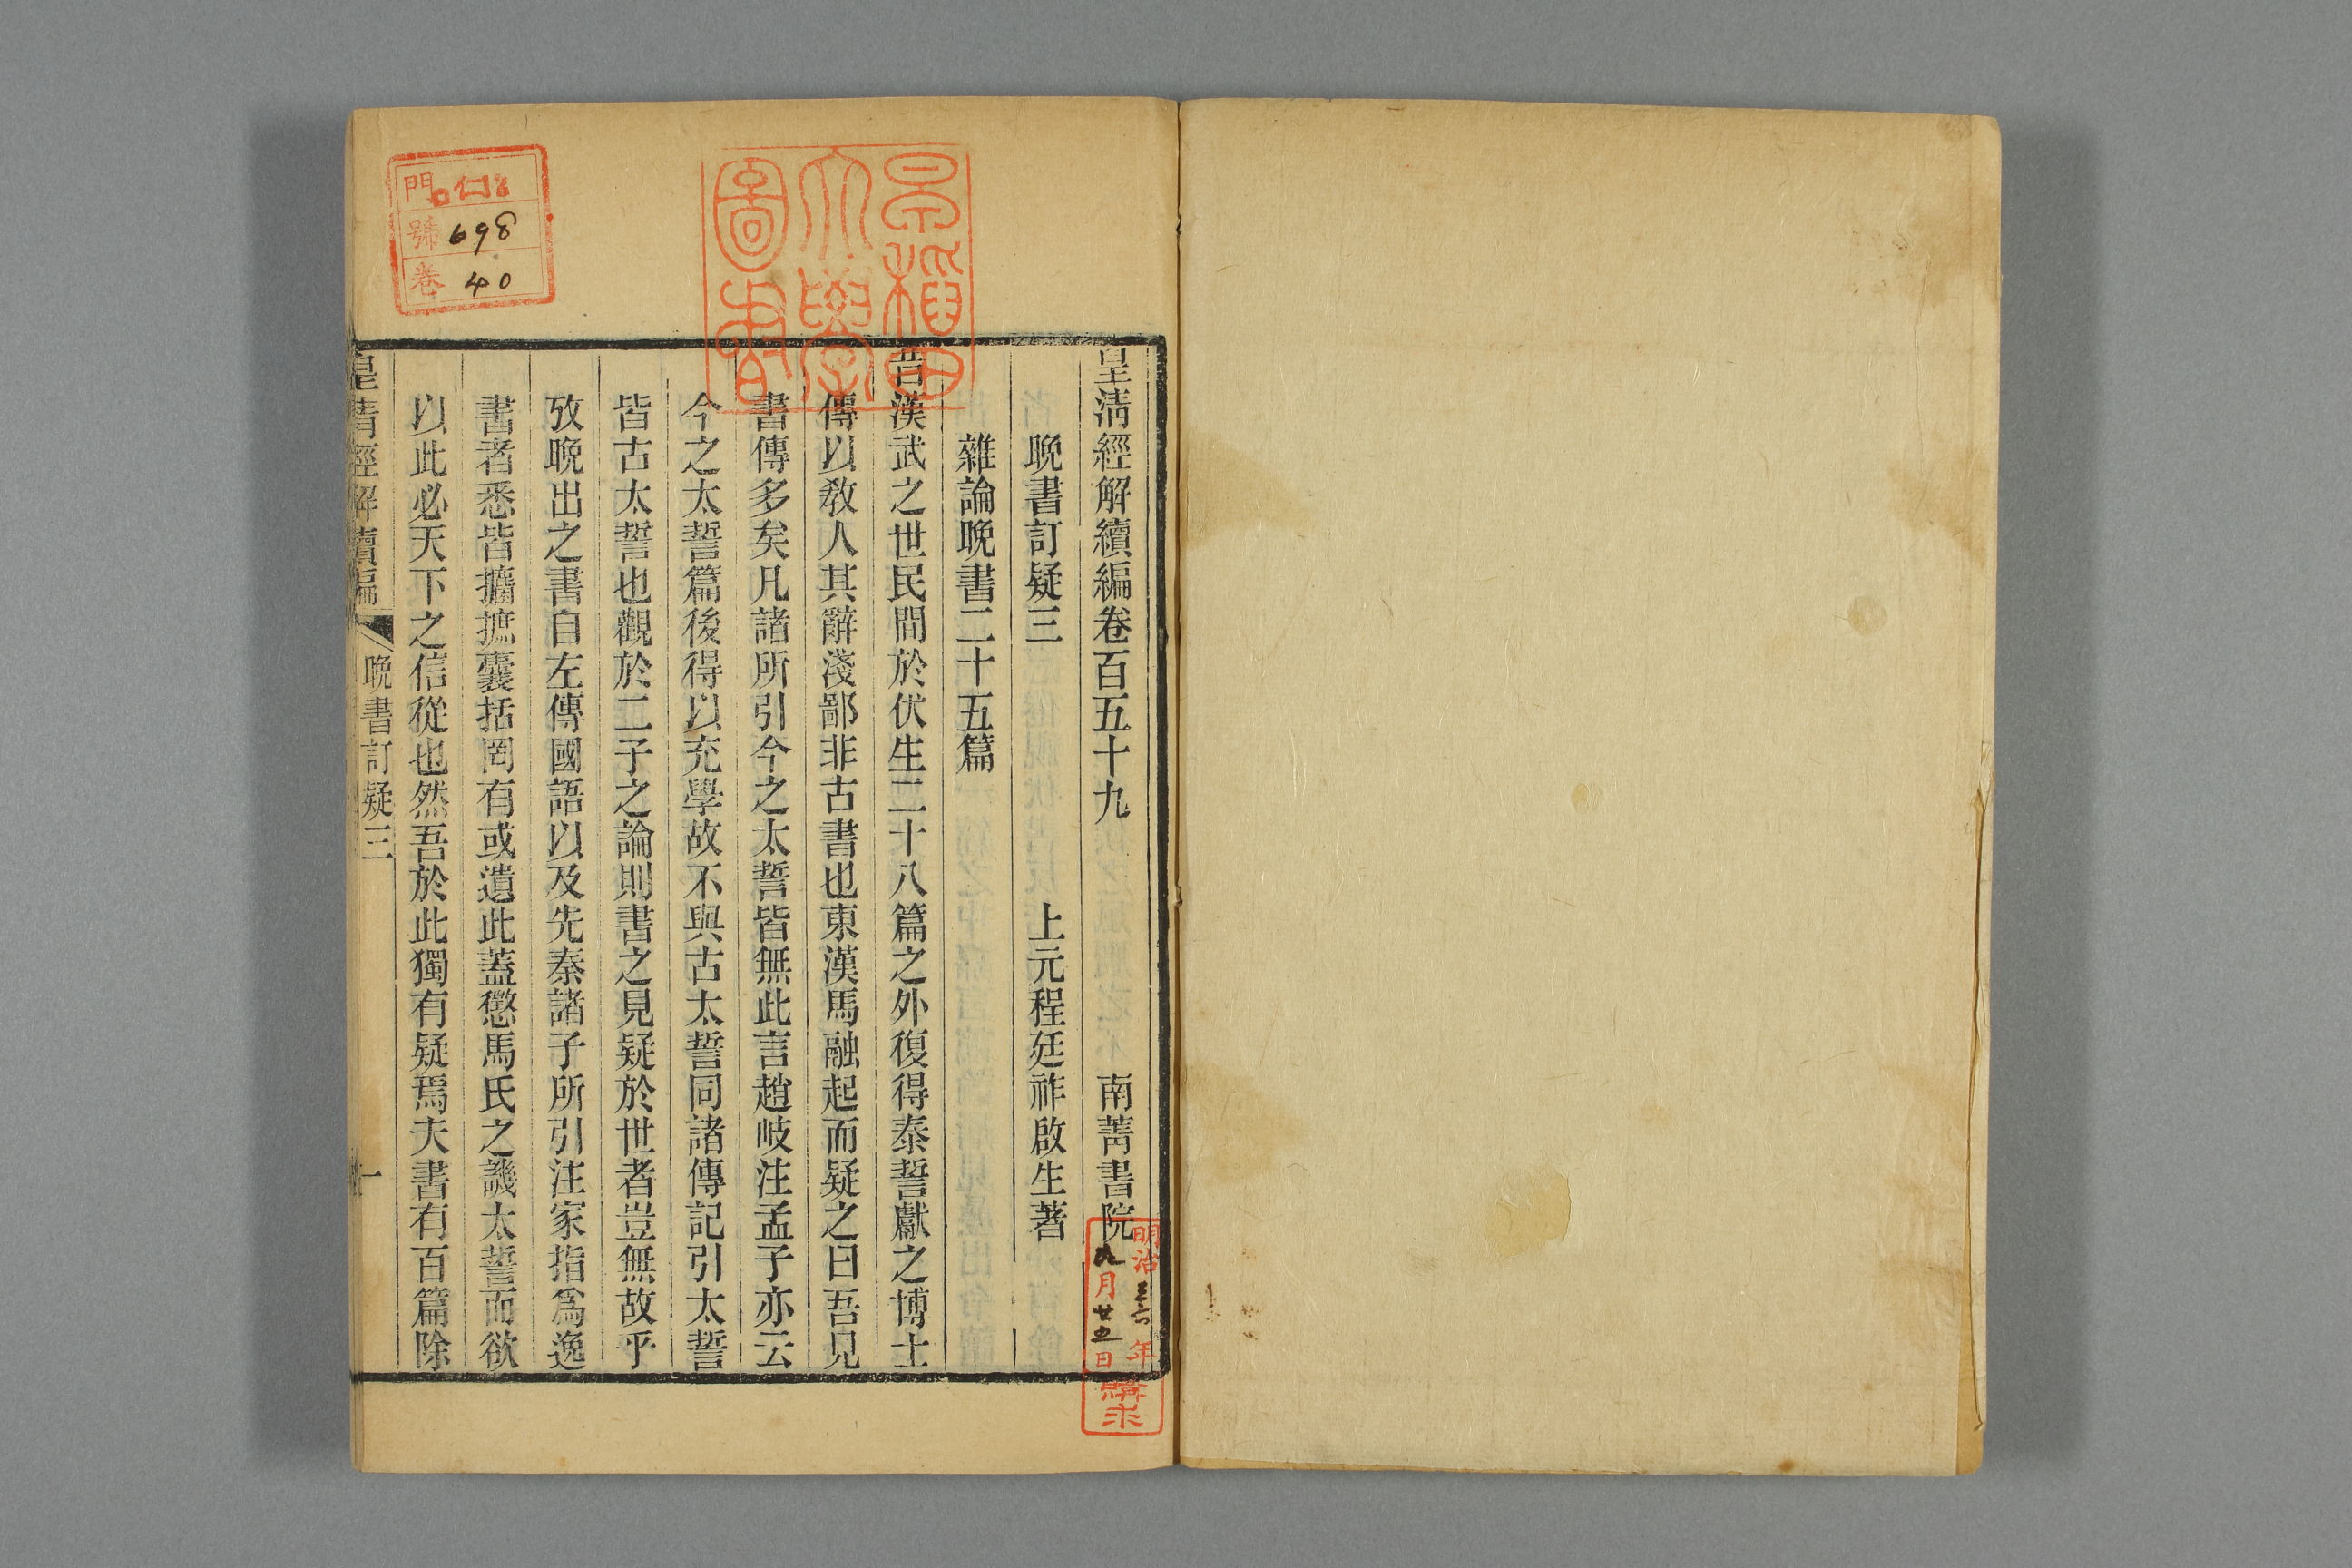 皇清經解續編卷百五十九 南菁書院
晚書訂疑三 上元程廷祚啟生著
雜論晚書二十五篇
昔漢武之世民間於伏生二十八篇之外復得泰誓獻之博士
傳以敎人其辭淺鄙非古書也東漢馬融起而疑之曰吾見
書傳多矣凡諸所引今之太誓皆無此言趙岐注孟子亦云
今之太誓篇後得以充學故不與古太誓同諸傳記引太誓
皆古太誓也觀於二子之論則書之見疑於世者豈無故乎
攷晚出之書自左傳國語以及先秦諸子所引注家指爲逸
書者悉皆攟摭囊括罔有或遺此蓋懲馬氏之譏太誓而欲
以此必天下之信從也然吾於此獨有疑焉夫書有百篇除
皇清經解續編 晚書訂疑三 一
早稻田
大學
圖書
門 仁
號 698
卷 40
明治三六年
九月廿五日
購求